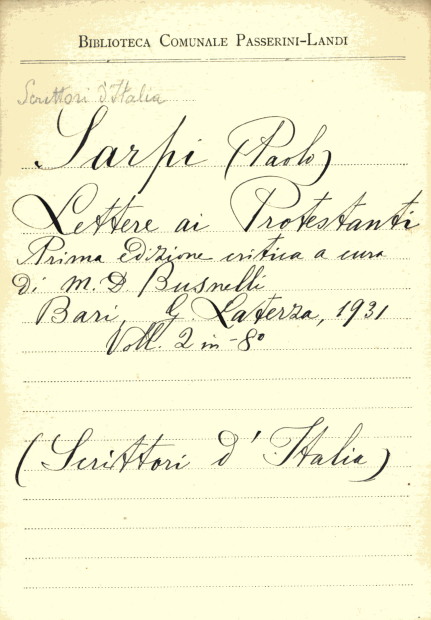 BIBLIOTECA COMUNALE PASSERINI-LANDI
Scrittori d'Italia
Sarpi (Paolo)
Lettere ai Protestanti
Prima edizione critica a cura
di M. D. Busnelli
Bari, G. Laterza, 1931
Voll. 2 in-8°
(Scrittori d'Italia)